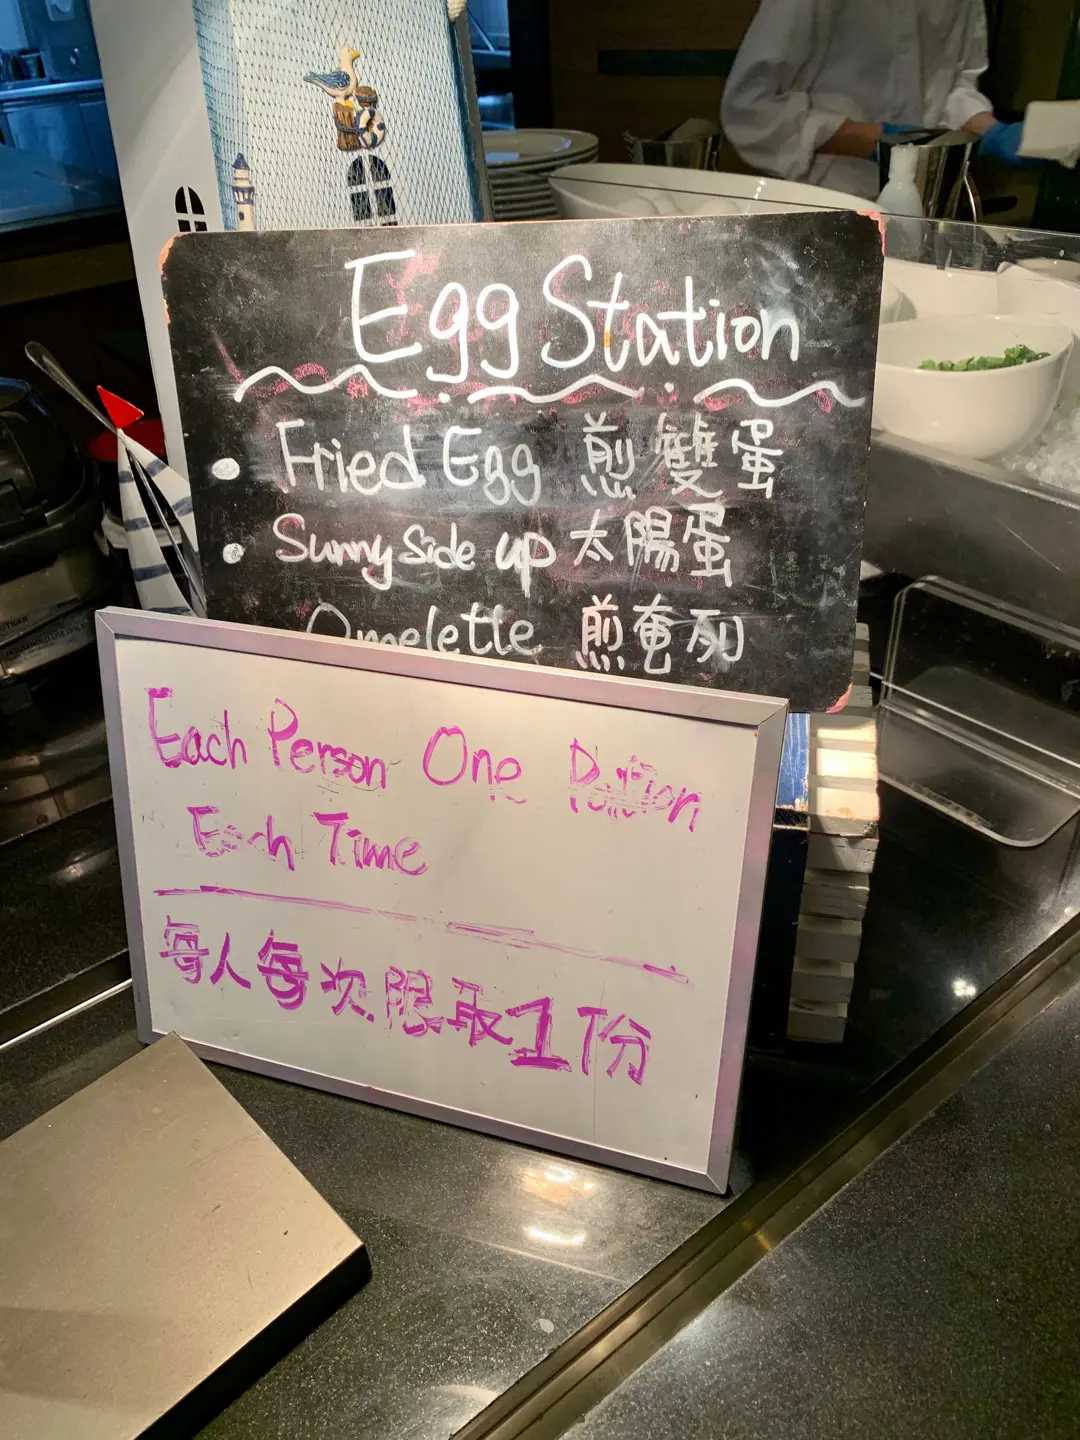 Egg Station
Fried Egg 煎雙蛋
Sunny side up 太陽蛋
Omelette 煎奄列
Each Person One Potion
Each Time
每人每次限取1份